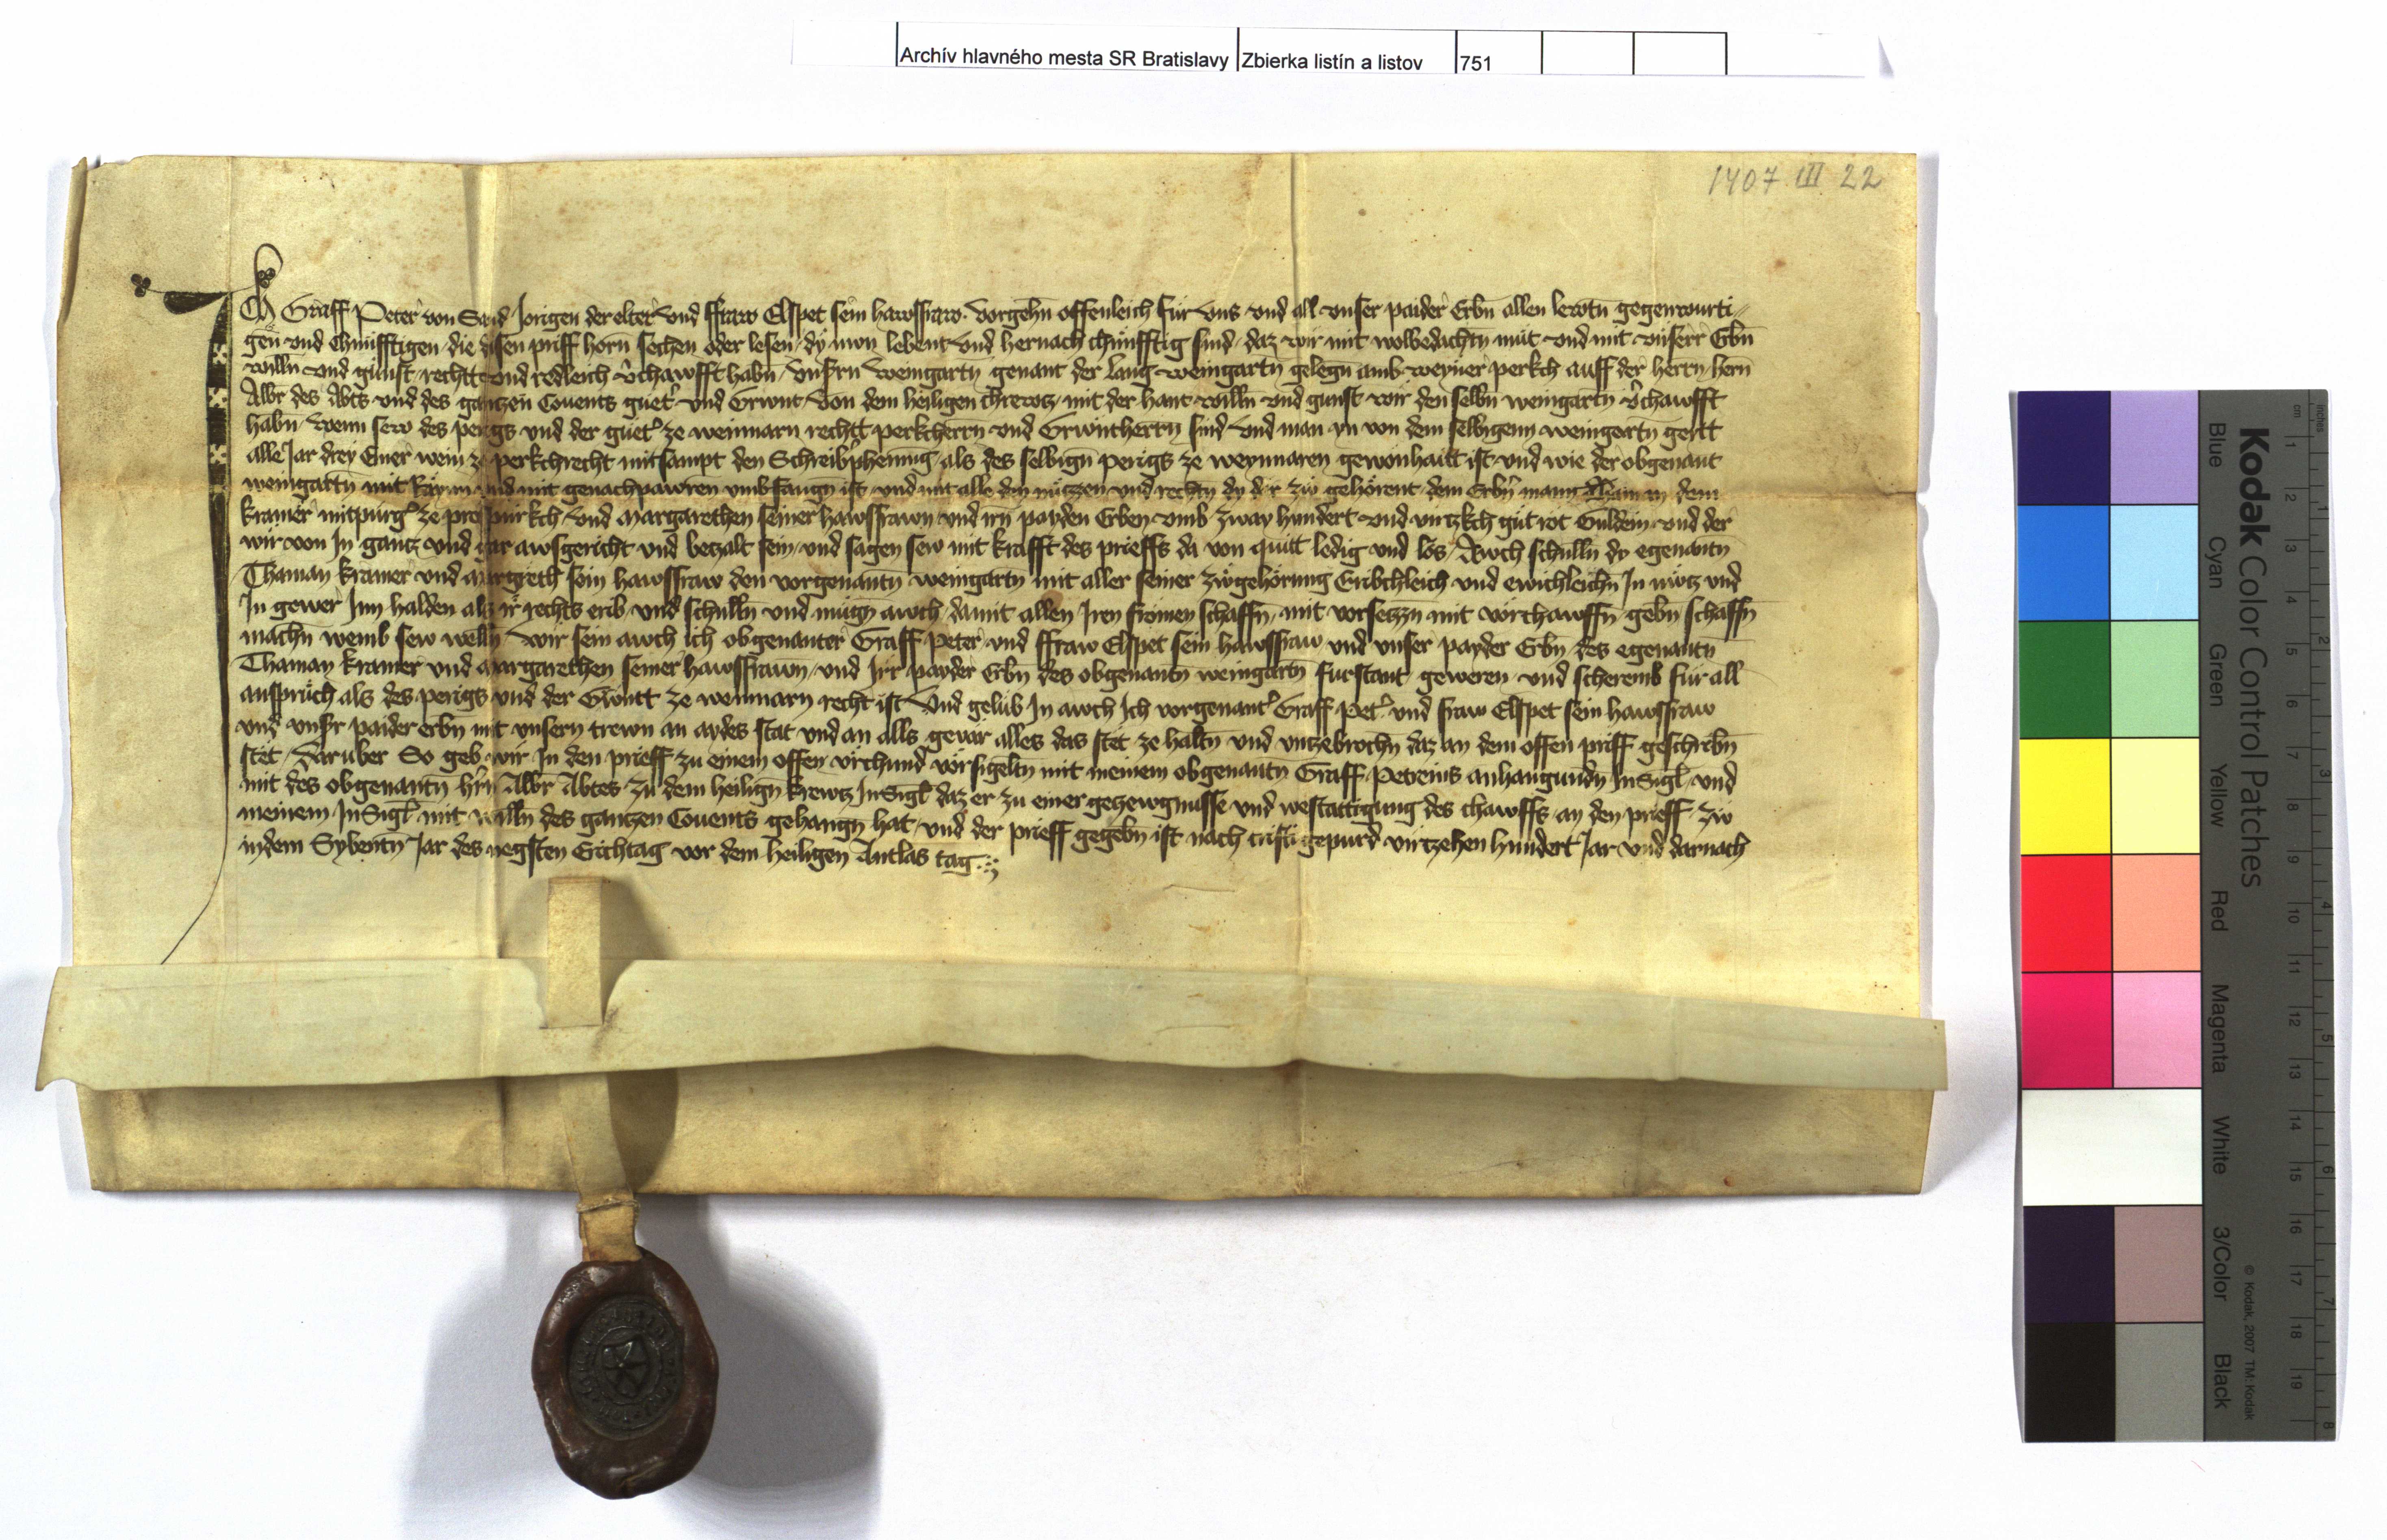 Archív hlavného mesta SR Bratislavy Zbierka listín a listov 751
1407 III 22
Ich Graff Peter von Sand Jorigen der elter und ffraw Elspet sein hawsfraw vorgehn offenleich für uns und all unser paider Erbn allen lewtn gegenwurti-
gen und chunfftigen die disen priff horn sechen oder lesen dy nwn lebent und hernach chunfftig sind daz wir mit wolbedachtn mut und mit unserr Erbn
willn und gunst rechtt und redleich vchawfft habn unsrn weingartn genant der lang weingartn gelegn amb weyner perkch auff der herrn hern
Albr des Abts und des gantzen Covents guet und Grwnt von dem heiligen chrewtz mit der hant willn und gunst wir den selbn weingartn vchawfft
habn wenn sew des perigs und der guet ze weinmarn rechtt perkherrn und Grwntherrn sind und man yn von dem selbigenn weingartn
alle Jar drey Emer wein ze perkchrecht mitsampt den Schreibphening als des selbign perigs ze weynmaren gewonhaitt ist und wie der obgenant
weingartn mit und mit genachpawren umbfangn ist und mit alle den nutzen und rechtn dy dar zw gehorent dem Erbn mann Thaman dem
kramer mitpurg ze prespurkch und Margarethen seiner hawsfrawn und irn payden Erben umb zway hundert und virtzkch gut rot Guldein und der
wir von In gantz und gar awsgericht und betzalt sein und sagen sew mit krafft des prieffs da von quitt ledig und los Awch schulln dy egenantn
Thaman kramer und margreth sein hawsfraw den vorgenantn weingartn mit aller seiner zwgehorung Eribchleich und ewichleichn In nwtz und
In gewer Inn halden als ir rechts erib und schulln und mugn awch damit allen Iren fromen schaffn mit vorsetzn mit vorchawffn gebn schaffn
machn wemb sew welln wir sein awch ich obgenanter Graff Peter und ffraw Elspet sein hawsfraw und unser payder Erbn des egenantn
Thaman kramer und Margarethen seiner hawsfrawn und Irr payder Erbn des obgenantn weingartn furstant geweren und scheremb für all
anspruch als des perigs und der Grwntt ze weinmarn recht ist Und gelub In awch Ich vorgenant Graff Pet und fraw Elspet sein hawsfraw
und unsr paider erbn mit unsern trewn an aydes stat und an alls gevar alles das stet ze haltn und untzebrochn daz an dem offen priff geschribn
stet Daruber So geb wir In den prieff zu einem offen urchund vorsigeltn mit meinem obgenantn Graff Petreins anhangundn InSigl und
mit des obgenantn hrn Albr Abtes zu dem heilign krewtz InSigl daz er zu einer getzewgnusse und westattigung des chawffs an den prieff zw
meinem InSigl mit willn des gantzen Covents gehangn hat und der prieff gegebn ist nach cristi gepurd virtzehen hundert Jar und darnach
indem Sybentn Jar des negsten Erichtag vor dem heiligen Antlas tag
Kodak Color Control Patches
Blue Cyan Green Yellow Red Magenta White 3/Color Black
© Kodak, 2007 TM: Kodak
inches 1 2 3 4 5 6 7 8
cm 1 2 3 4 5 6 7 8 9 10 11 12 13 14 15 16 17 18 19